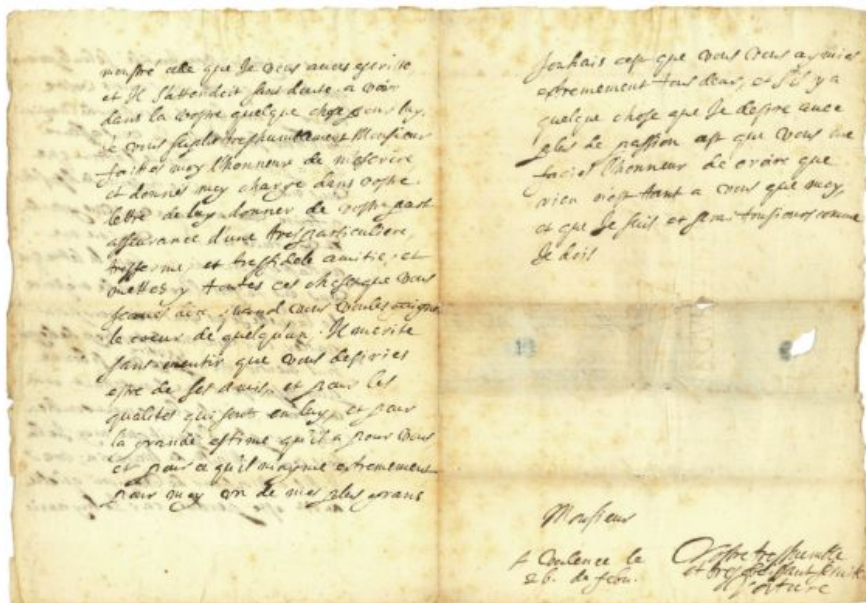 monstré celle que Je vous auois escritte,
et Il s'attendoit sans doute a voir
dans la vostre quelque chose pour luy.
Je vous suplie treshumblement Monsieur
faittes moy l'honneur de m'escrire
et donnés moy charge dans vostre
lettre de luy donner de vostre part
asseurance d'une tresparticuliere,
tresferme, et tresfidele amitie, et
mettes y toutes ces choses que vous
sçaués dire quand vous voules gaigner
le coeur de quelqu'un. Il merite
sans mentir que vous desiries
estre de ses amis, et pour les
qualités qui sont en luy, et pour
la grande estime qu'il a pour vous
et pour ce qu'il m'ayme extremement
pour moy un de mes plus grans
souhais est que vous vous aymies
extremement tous deux, et s'il y a
quelque chose que Je desire auec
plus de passion est que vous me
facies l'honneur de croire que
rien n'est tant a vous que moy,
et que Je suis et serai tousiours comme
Je dois
Monsieur
A Valence le
26. de febu.
Vostre treshumble
et tresobeissant seruite
Voiture